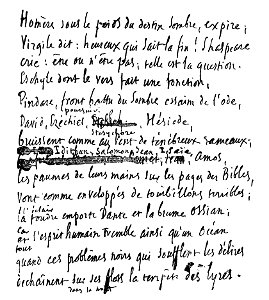 Homère sous le poids du destin sombre, expire ;
Virgile dit : heureux qui sait la fin ! Shakspeare
crie : être ou n'être pas, telle est la question.
Eschyle dont le vers fait une fonction,
Pindare, front battu du sombre essaim de l'ode,
poursuivi
David, Ezéchiel, Hésiode,
Stésichore
bruissent comme au vent de ténébreux rameaux,
Salomon, Jean, Isaïe
et, Amos,
les paumes de leurs mains sur les pages des Bibles,
Vont comme enveloppés de tourbillons terribles ;
l'éclair
la foudre emporte Dante et la brume Ossian ;
car
l'esprit humain tremble ainsi qu'un Océan
quand ces problèmes noirs qui soufflent les délires
déchaînent sur ses flots la tempête des lyres.
dans la nuit